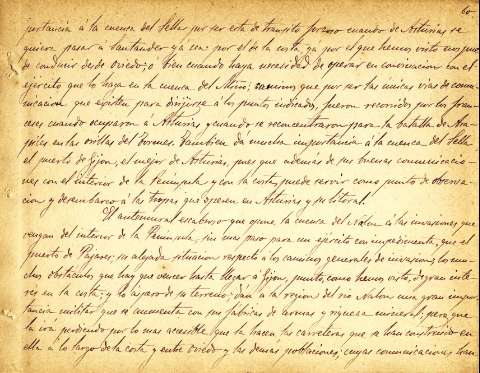 60
portancia á la cuenca del Sella por ser esta de transito forzoso cuando de Asturias se
quiera pasar á Santander ya sea por el de la costa, ya por el que hemos visto nos pue
de conducir desde Oviedo; ó bien cuando haya necesidad de operar en convinacion con el
ejército que lo haga en la cuenca del Miño; caminos que por ser las unicas vias de comu-
nicacion que existen para dirijirse á los puntos indicados, fueron recorridos por los fran-
ceses cuando ocuparon á Asturias y cuando se reconcentraron para la batalla de Ara-
piles en las orillas del Tormes. Tambien dá mucha importancia á la cuenca del Sella
el puerto de Gijon, el mejor de Asturias, pues que además de sus buenas comunicacio-
nes con el interior de la Península y con la costa, puede servir como punto de observa-
cion y desembarco á las tropas que operen en Asturias y su litoral.
El antemural escabroso que opone la cuenca del Nalon á las invasiones que
vengan del interior de la Península, sin mas paso para un ejército con impedimenta, que el
puerto de Pajares; su alejada situacion respecto á los caminos generales de invasion; los mu-
chos obstáculos que hay que vencer hasta llegar á Gijon, punto, como hemos visto, de gran inte-
res en la costa; y lo áspero de su terreno; dan á la region del rio Nalon una gran impor-
tancia militar que se aumenta con sus fabricas de armas y riqueza mineral; pero que
la irá perdiendo por lo mas accesible que la hacen las carreteras que se han construido en
ella á lo largo de la costa y entre Oviedo y las demas poblaciones; cuyas comunicaciones han